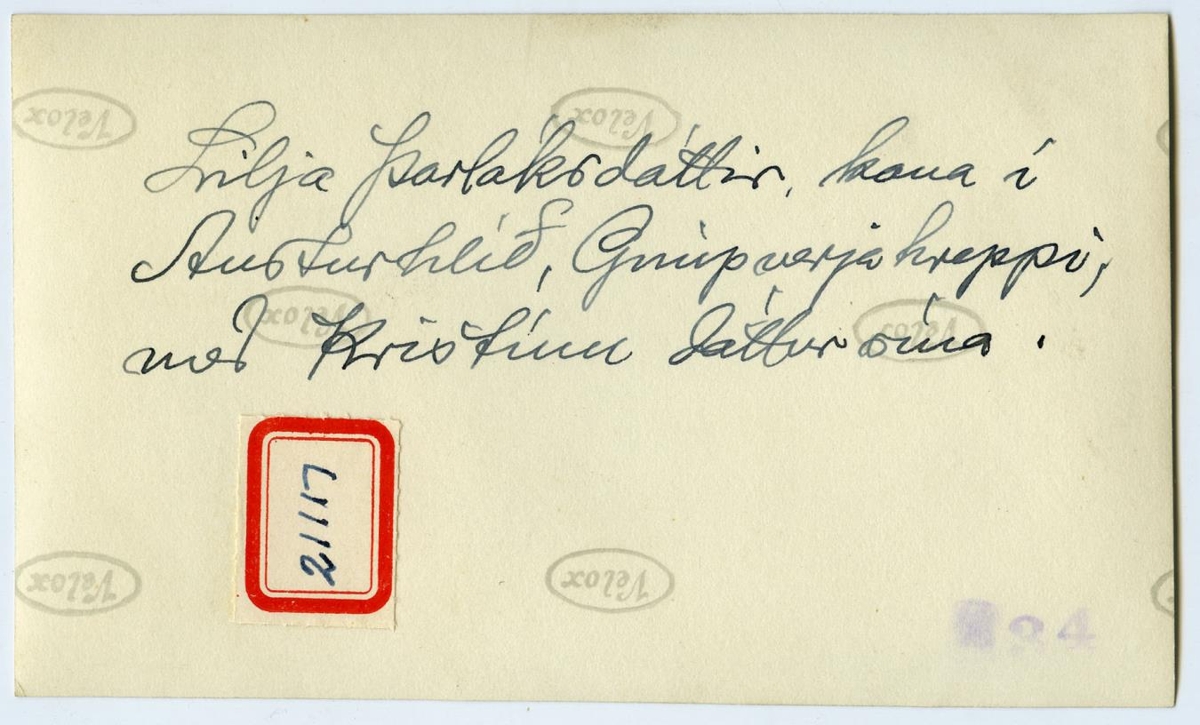 Lilja Þorláksdóttir, kona í
Austurhlíð, Gnúpverjahreppi,
með Kristínu dóttur sína.
21117
Velox
Velox
Velox
Velox
Velox
Velox
84